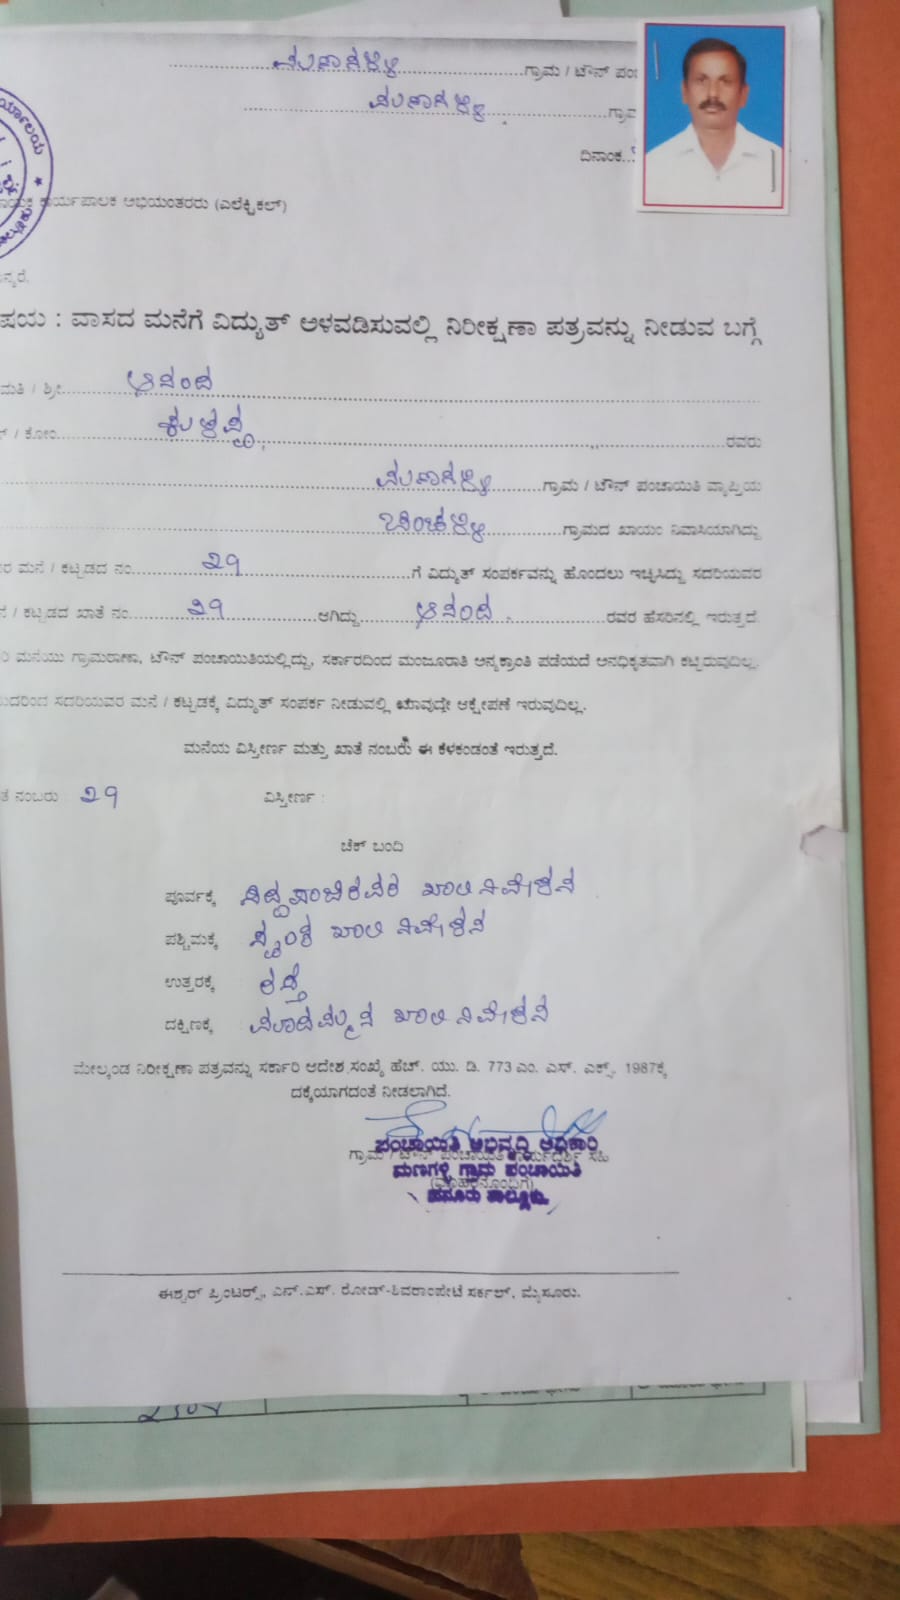 ಮಣಗಳ್ಳಿ ಗ್ರಾಮ / ಟೌನ್ ಪಂ
ಮಣಗಳ್ಳಿ ಗ್ರಾಮ
ದಿನಾಂಕ
ಕಾರ್ಯಪಾಲಕ ಅಭಿಯಂತರರು (ಎಲೆಕ್ಟ್ರಿಕಲ್)
ನ್ಯರೆ,
ಷಯ : ವಾಸದ ಮನೆಗೆ ವಿದ್ಯುತ್ ಅಳವಡಿಸುವಲ್ಲಿ ನಿರೀಕ್ಷಣಾ ಪತ್ರವನ್ನು ನೀಡುವ ಬಗ್ಗೆ
ಮತಿ / ಶ್ರೀ ಆನಂದ
/ ಕೋಂ ರವರು
ಮಣಗಳ್ಳಿ ಗ್ರಾಮ / ಟೌನ್ ಪಂಚಾಯಿತಿ ವ್ಯಾಪ್ತಿಯ
ಗ್ರಾಮದ ಖಾಯಂ ನಿವಾಸಿಯಾಗಿದ್ದು
ರ ಮನೆ / ಕಟ್ಟಡದ ನಂ 29 ಗೆ ವಿದ್ಯುತ್ ಸಂಪರ್ಕವನ್ನು ಹೊಂದಲು ಇಚ್ಛಿಸಿದ್ದು ಸದರಿಯವರ
ನೆ / ಕಟ್ಟಡದ ಖಾತೆ ನಂ 29 ಆಗಿದ್ದು ಆನಂದ ರವರ ಹೆಸರಿನಲ್ಲಿ ಇರುತ್ತದೆ.
ಮನೆಯು ಗ್ರಾಮಠಾಣಾ, ಟೌನ್ ಪಂಚಾಯಿತಿಯಲ್ಲಿದ್ದು, ಸರ್ಕಾರದಿಂದ ಮಂಜೂರಾತಿ ಅನ್ಯಕ್ರಾಂತಿ ಪಡೆಯದೆ ಅನಧಿಕೃತವಾಗಿ ಕಟ್ಟಿರುವುದಿಲ್ಲ.
ುದರಿಂದ ಸದರಿಯವರ ಮನೆ / ಕಟ್ಟಡಕ್ಕೆ ವಿದ್ಯುತ್ ಸಂಪರ್ಕ ನೀಡುವಲ್ಲಿ ಯಾವುದೇ ಆಕ್ಷೇಪಣೆ ಇರುವುದಿಲ್ಲ.
ಮನೆಯ ವಿಸ್ತೀರ್ಣ ಮತ್ತು ಖಾತೆ ನಂಬರು ಈ ಕೆಳಕಂಡಂತೆ ಇರುತ್ತದೆ.
ತೆ ನಂಬರು : 29 ವಿಸ್ತೀರ್ಣ :
ಚೆಕ್ ಬಂದಿ
ಪೂರ್ವಕ್ಕೆ ಖಾಲಿ ನಿವೇಶನ
ಪಶ್ಚಿಮಕ್ಕೆ ಸ್ವಂತ ಖಾಲಿ ನಿವೇಶನ
ಉತ್ತರಕ್ಕೆ ರಸ್ತೆ
ದಕ್ಷಿಣಕ್ಕೆ ಮಾದಮ್ಮನ ಖಾಲಿ ನಿವೇಶನ
ಮೇಲ್ಕಂಡ ನಿರೀಕ್ಷಣಾ ಪತ್ರವನ್ನು ಸರ್ಕಾರಿ ಆದೇಶ ಸಂಖ್ಯೆ ಹೆಚ್. ಯು. ಡಿ. 773 ಎಂ. ಎಸ್. ಎಕ್ಸ್. 1987ಕ್ಕೆ
ದಕ್ಕೆಯಾಗದಂತೆ ನೀಡಲಾಗಿದೆ.
ಪಂಚಾಯಿತಿ ಅಭಿವೃದ್ಧಿ ಅಧಿಕಾರಿ
ಗ್ರಾಮ / ಟೌನ್ ಪಂಚಾಯಿತಿ ಕಾರ್ಯದರ್ಶಿ ಸಹಿ
ಮಣಗಳ್ಳಿ ಗ್ರಾಮ ಪಂಚಾಯಿತಿ
(ಮೊಹರಿನೊಂದಿಗೆ)
ಹನೂರು ತಾಲ್ಲೂಕು.
ಈಶ್ವರ್ ಪ್ರಿಂಟರ್ಸ್, ಎನ್.ಎಸ್. ರೋಡ್-ಶಿವರಾಂಪೇಟೆ ಸರ್ಕಲ್, ಮೈಸೂರು.